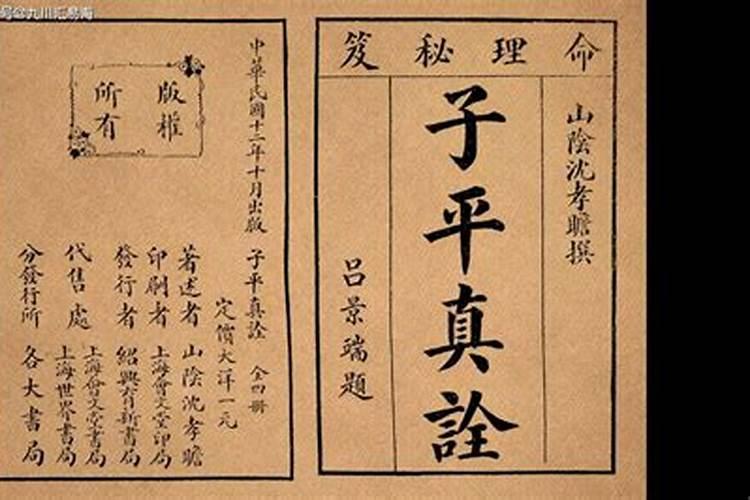 命理秘笈
山陰沈孝瞻撰
子平真詮
呂景瑞題
中華民國十二年十月出版
子平真詮 全四冊
定價大洋一元
版權
所有
著述者 山陰沈孝瞻
印刷者 上海會文堂印局
發行者 紹興育新書局
代售處 上海會文堂書局
上海世界書局
分發行所 各大書局